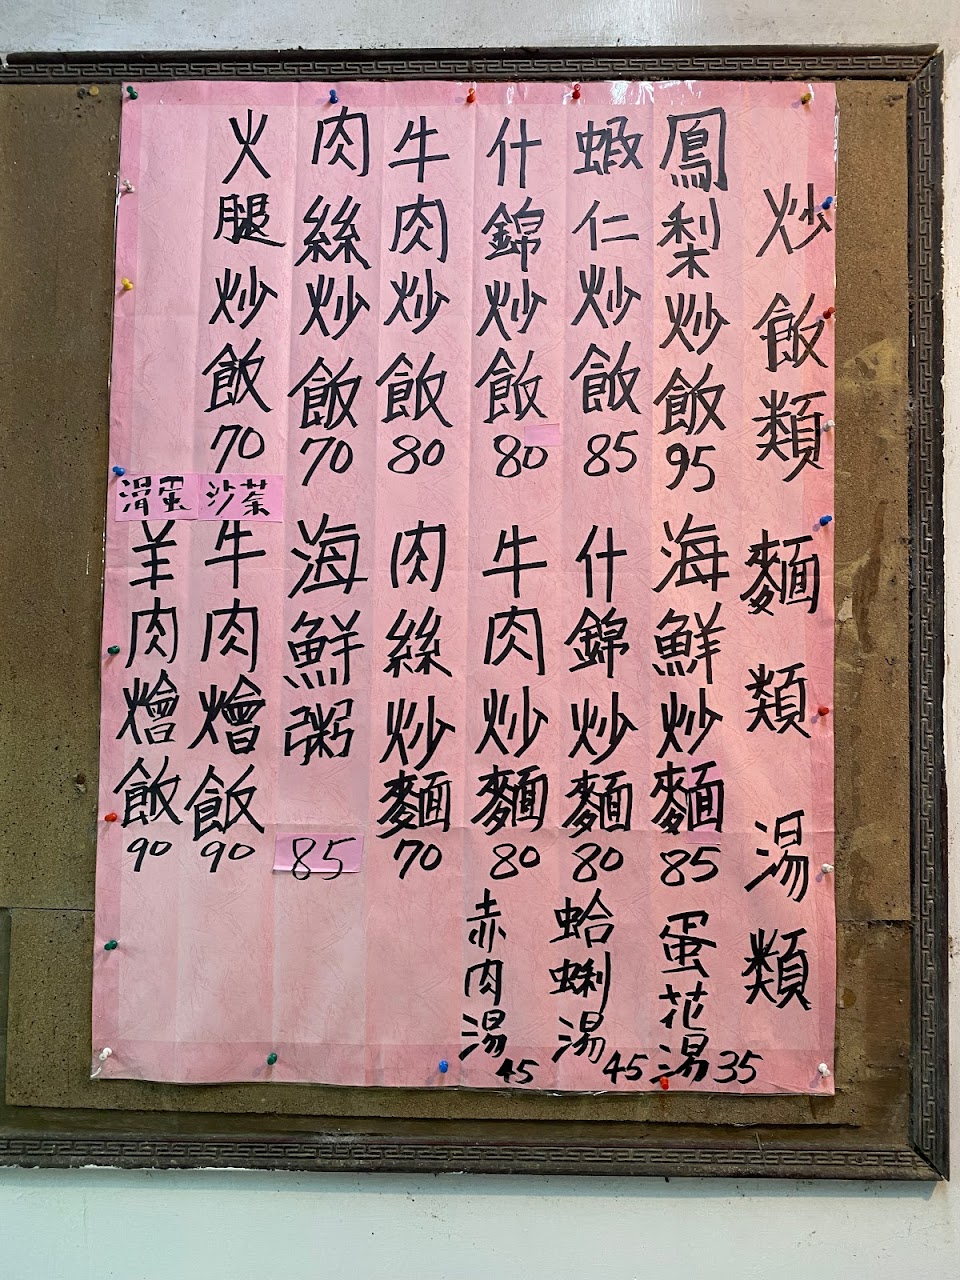 炒飯類
鳳梨炒飯95
蝦仁炒飯85
什錦炒飯80
牛肉炒飯80
肉絲炒飯70
火腿炒飯70
麵類
海鮮炒麵85
什錦炒麵80
牛肉炒麵80
肉絲炒麵70
海鮮粥85
沙茶牛肉燴飯90
滑蛋羊肉燴飯90
湯類
蛋花湯35
蛤蜊湯45
赤肉湯45